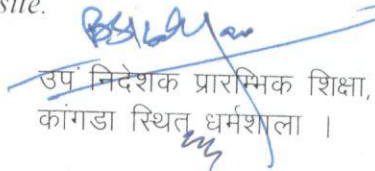 site.
उप निदेशक प्रारम्भिक शिक्षा,
कांगडा स्थित धर्मशाला ।